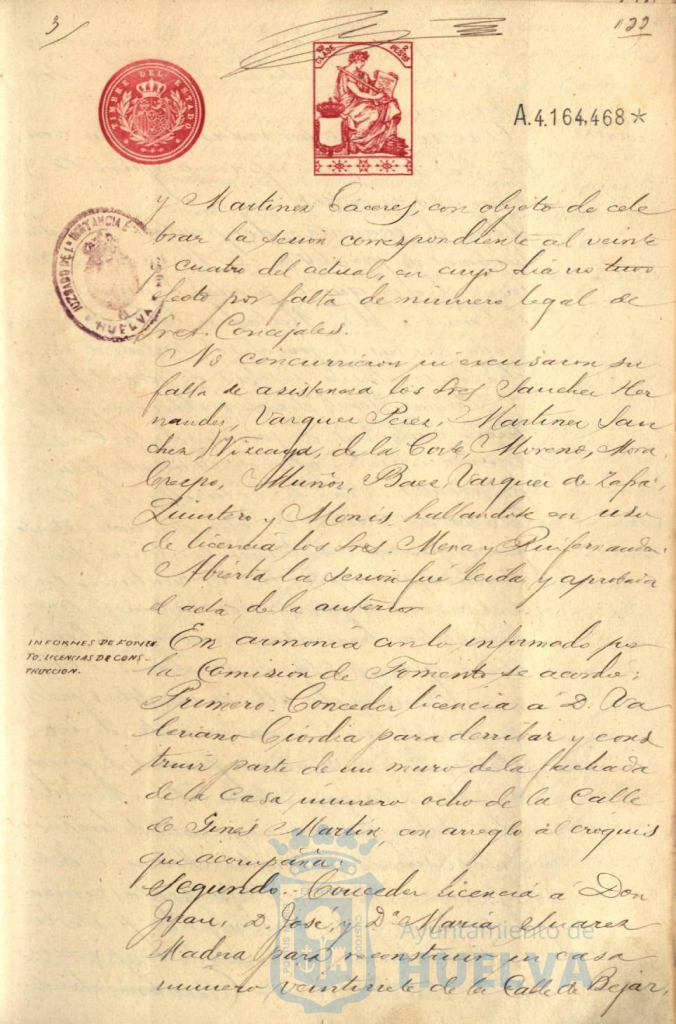 3
122
TIMBRE DEL ESTADO
10ª CLASE
2 PESETAS
A.4.164,468*
JUZGADO DE 1ª INSTANCIA
HUELVA
y Martinez Cáceres, con objeto de cele
brar la sesion correspondiente al veinte
y cuatro del actual, en cuyo dia no tuvo
efecto por falta de número legal de
Sres. Concejales.
No concurrieron ni escusaron su
falta de asistencia los Sres Sanchez Her
nandez, Vazquez Perez, Martinez San
chez, Vizcaya, de la Corte, Moreno, Mora,
Crespo, Muñoz, Baez, Vazquez de Zafra,
Quintero y Monis hallandose en uso
de licencia los Sres. Mena y Ruifernandez.
Abierta la sesion fué leida y aprobada
el acta de la anterior
INFORMES DE FOMEN
TO. LICENCIAS DE CONS-
TRUCCION.
En armonia con lo informado por
la Comision de Fomento se acordó:
Primero. Conceder licencia á D. Va
leriano Ciordia para derribar y cons
truir parte de un muro de la fachada
de la casa número ocho de la Calle
de Ginés Martin, con arreglo al croquis
que acompaña.
Segundo.- Conceder licencia á Don
Juan, D. Jose, y Dª Maria Suarez
Madera para reconstruir su casa
número veintisiete de la Calle de Bejar,
Ayuntamiento de
HUELVA